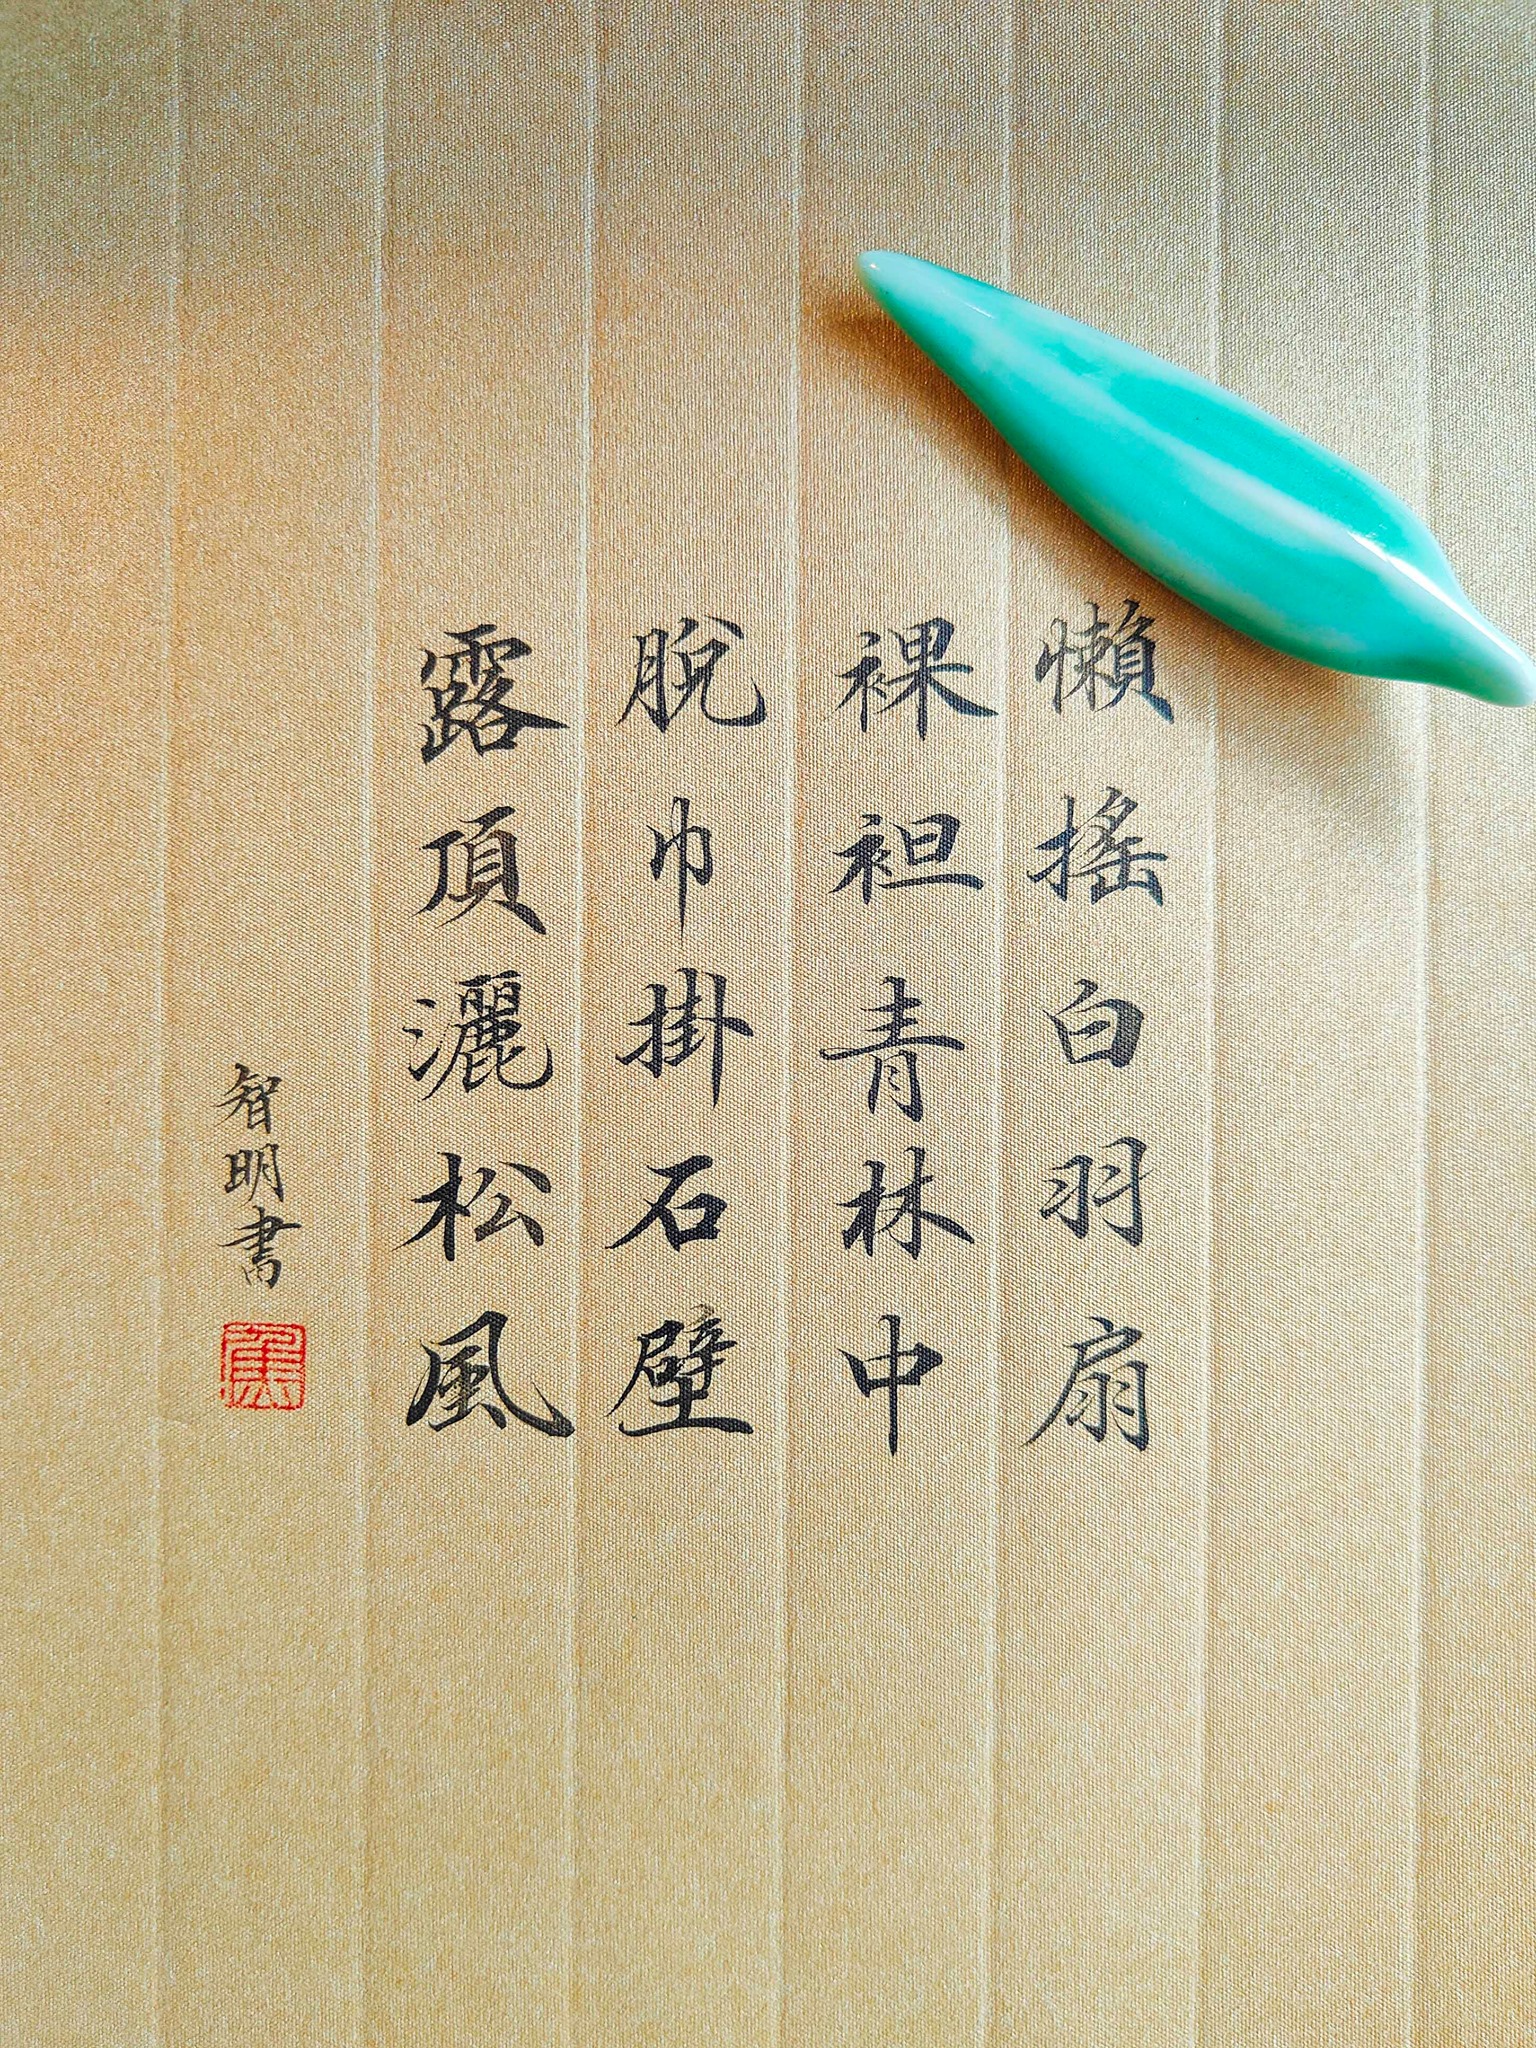 懶搖白羽扇
裸袒青林中
脫巾掛石壁
露頂灑松風
智明書